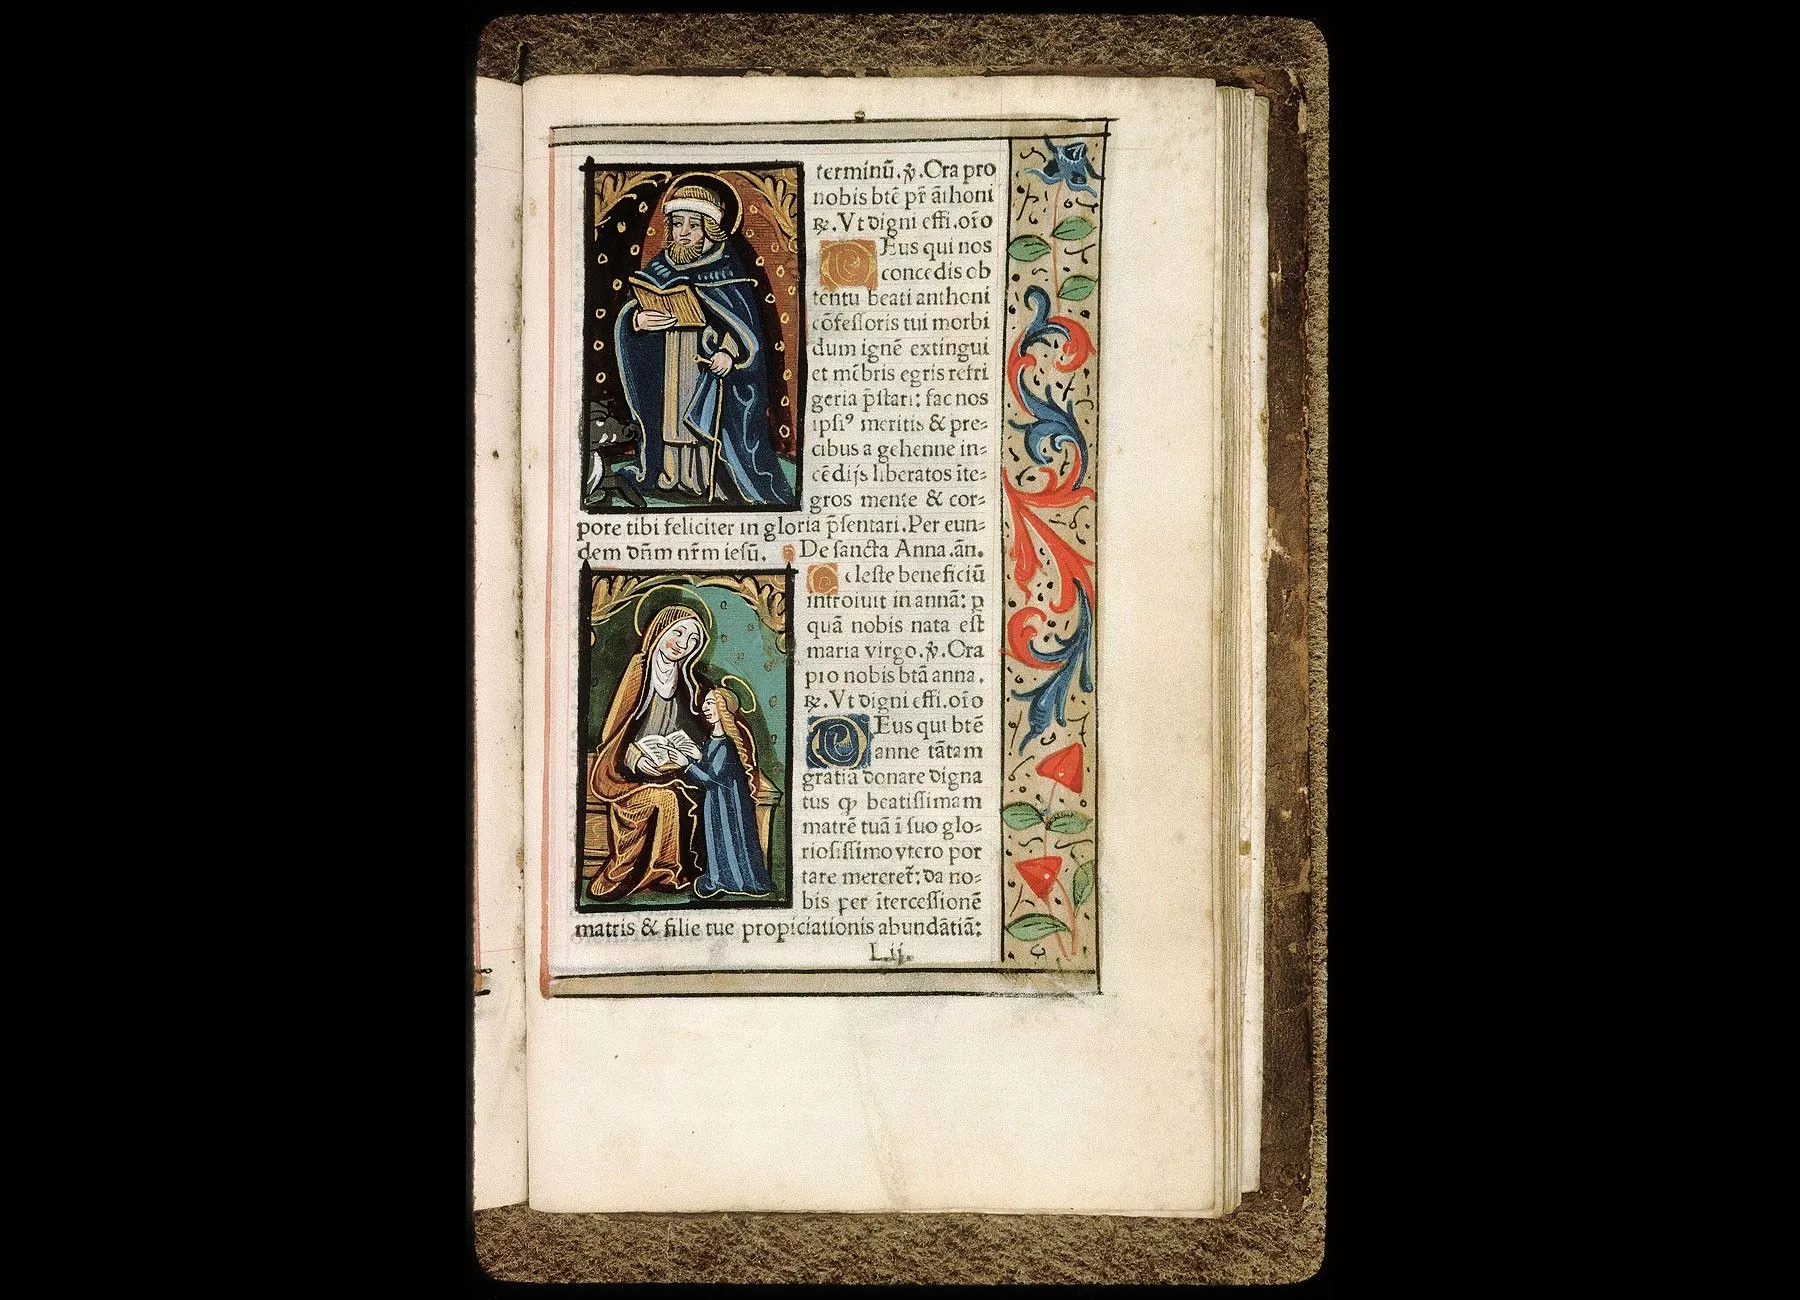 terminū. ℣. Ora pro
nobis btē pr̄ āthoni
℟. Vt digni effi. oīo
Deus qui nos
concedis ob
tentu beati anthoni
cōfessoris tui morbi
dum ignē extingui
et mēbris egris refri
geria p̄stari: fac nos
ipsiꝰ meritis & pre=
cibus a gehenne in=
cēdijs liberatos īte=
gros mente & cor=
pore tibi feliciter in gloria p̄sentari. Per eun=
dem dn̄m nr̄m iesū. De sancta Anna. añ.
Celeste beneficiū
introiuit in annā: ꝑ
quā nobis nata est
maria virgo. ℣. Ora
pro nobis btā anna.
℟. Vt digni effi. oīo
Deus qui btē
anne tātam
gratiā donare digna
tus ꝙ beatissimam
matrē tuā ī suo glo=
riosissimo vtero por
tare mereret̄: da no=
bis per ītercessionē
matris & filie tue propiciationis abundātiā:
L.ij.